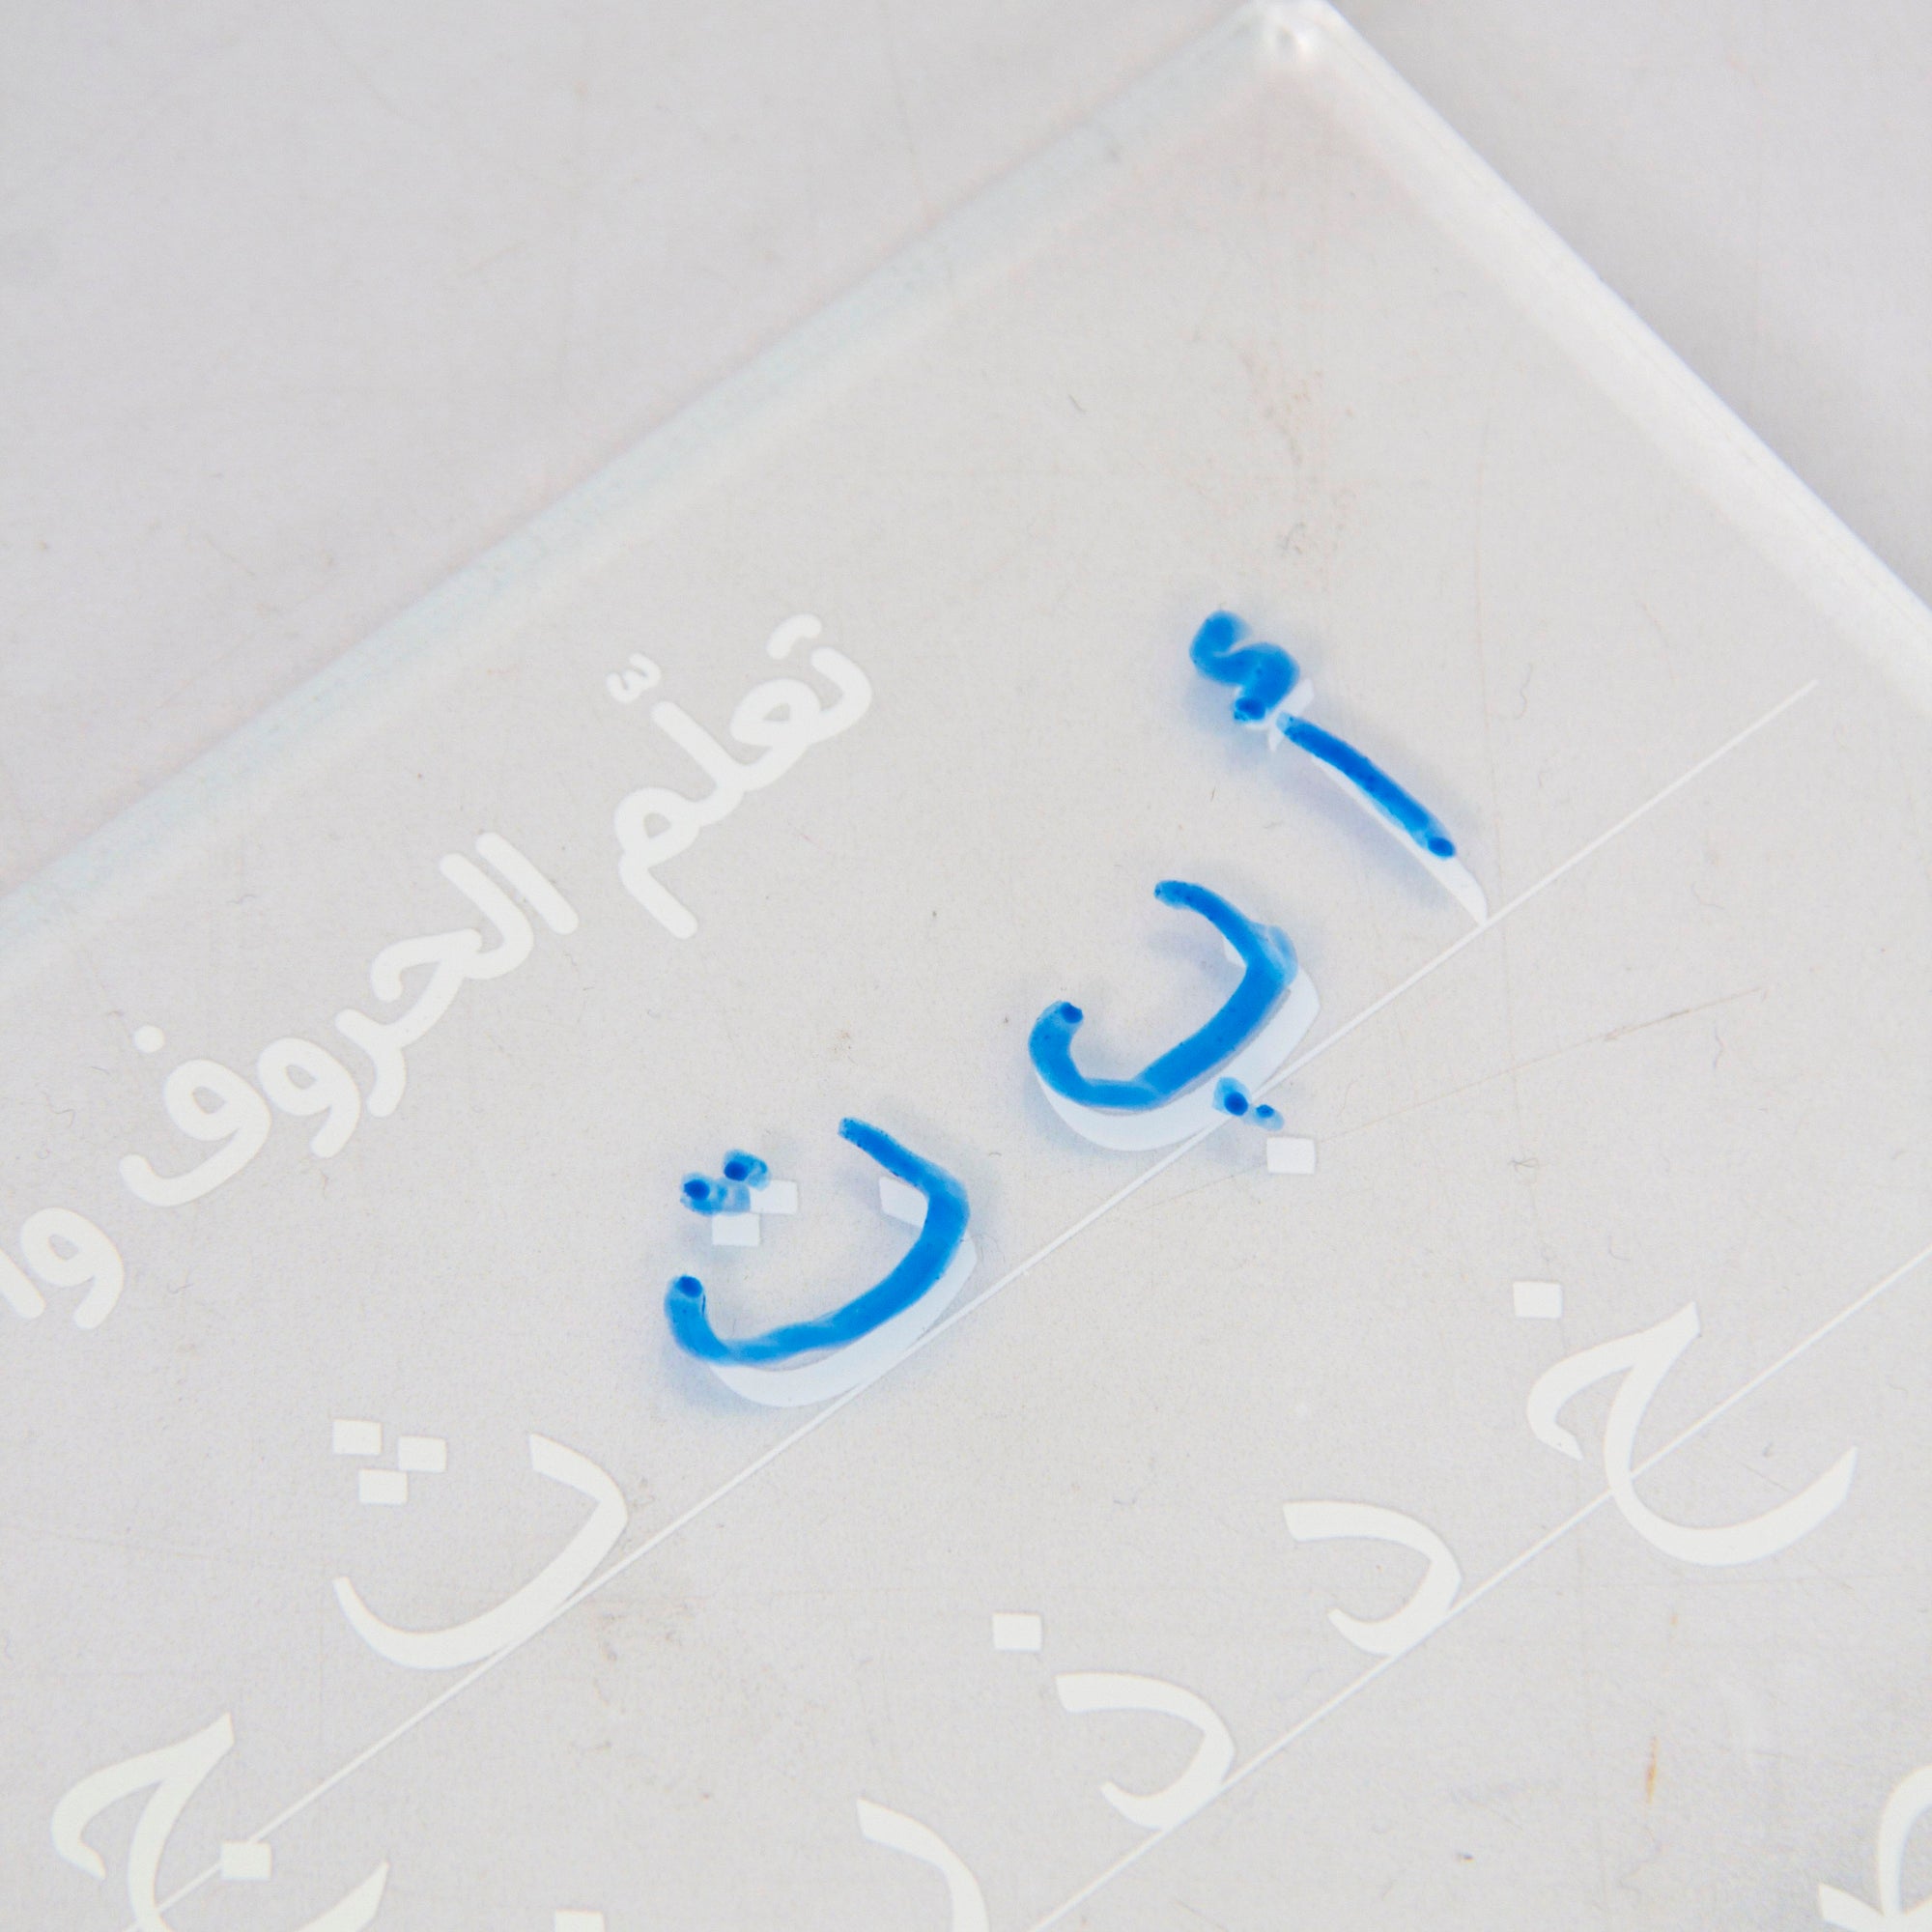 تعلّم الحروف
أ ب ت ث ج
خ د ذ ر